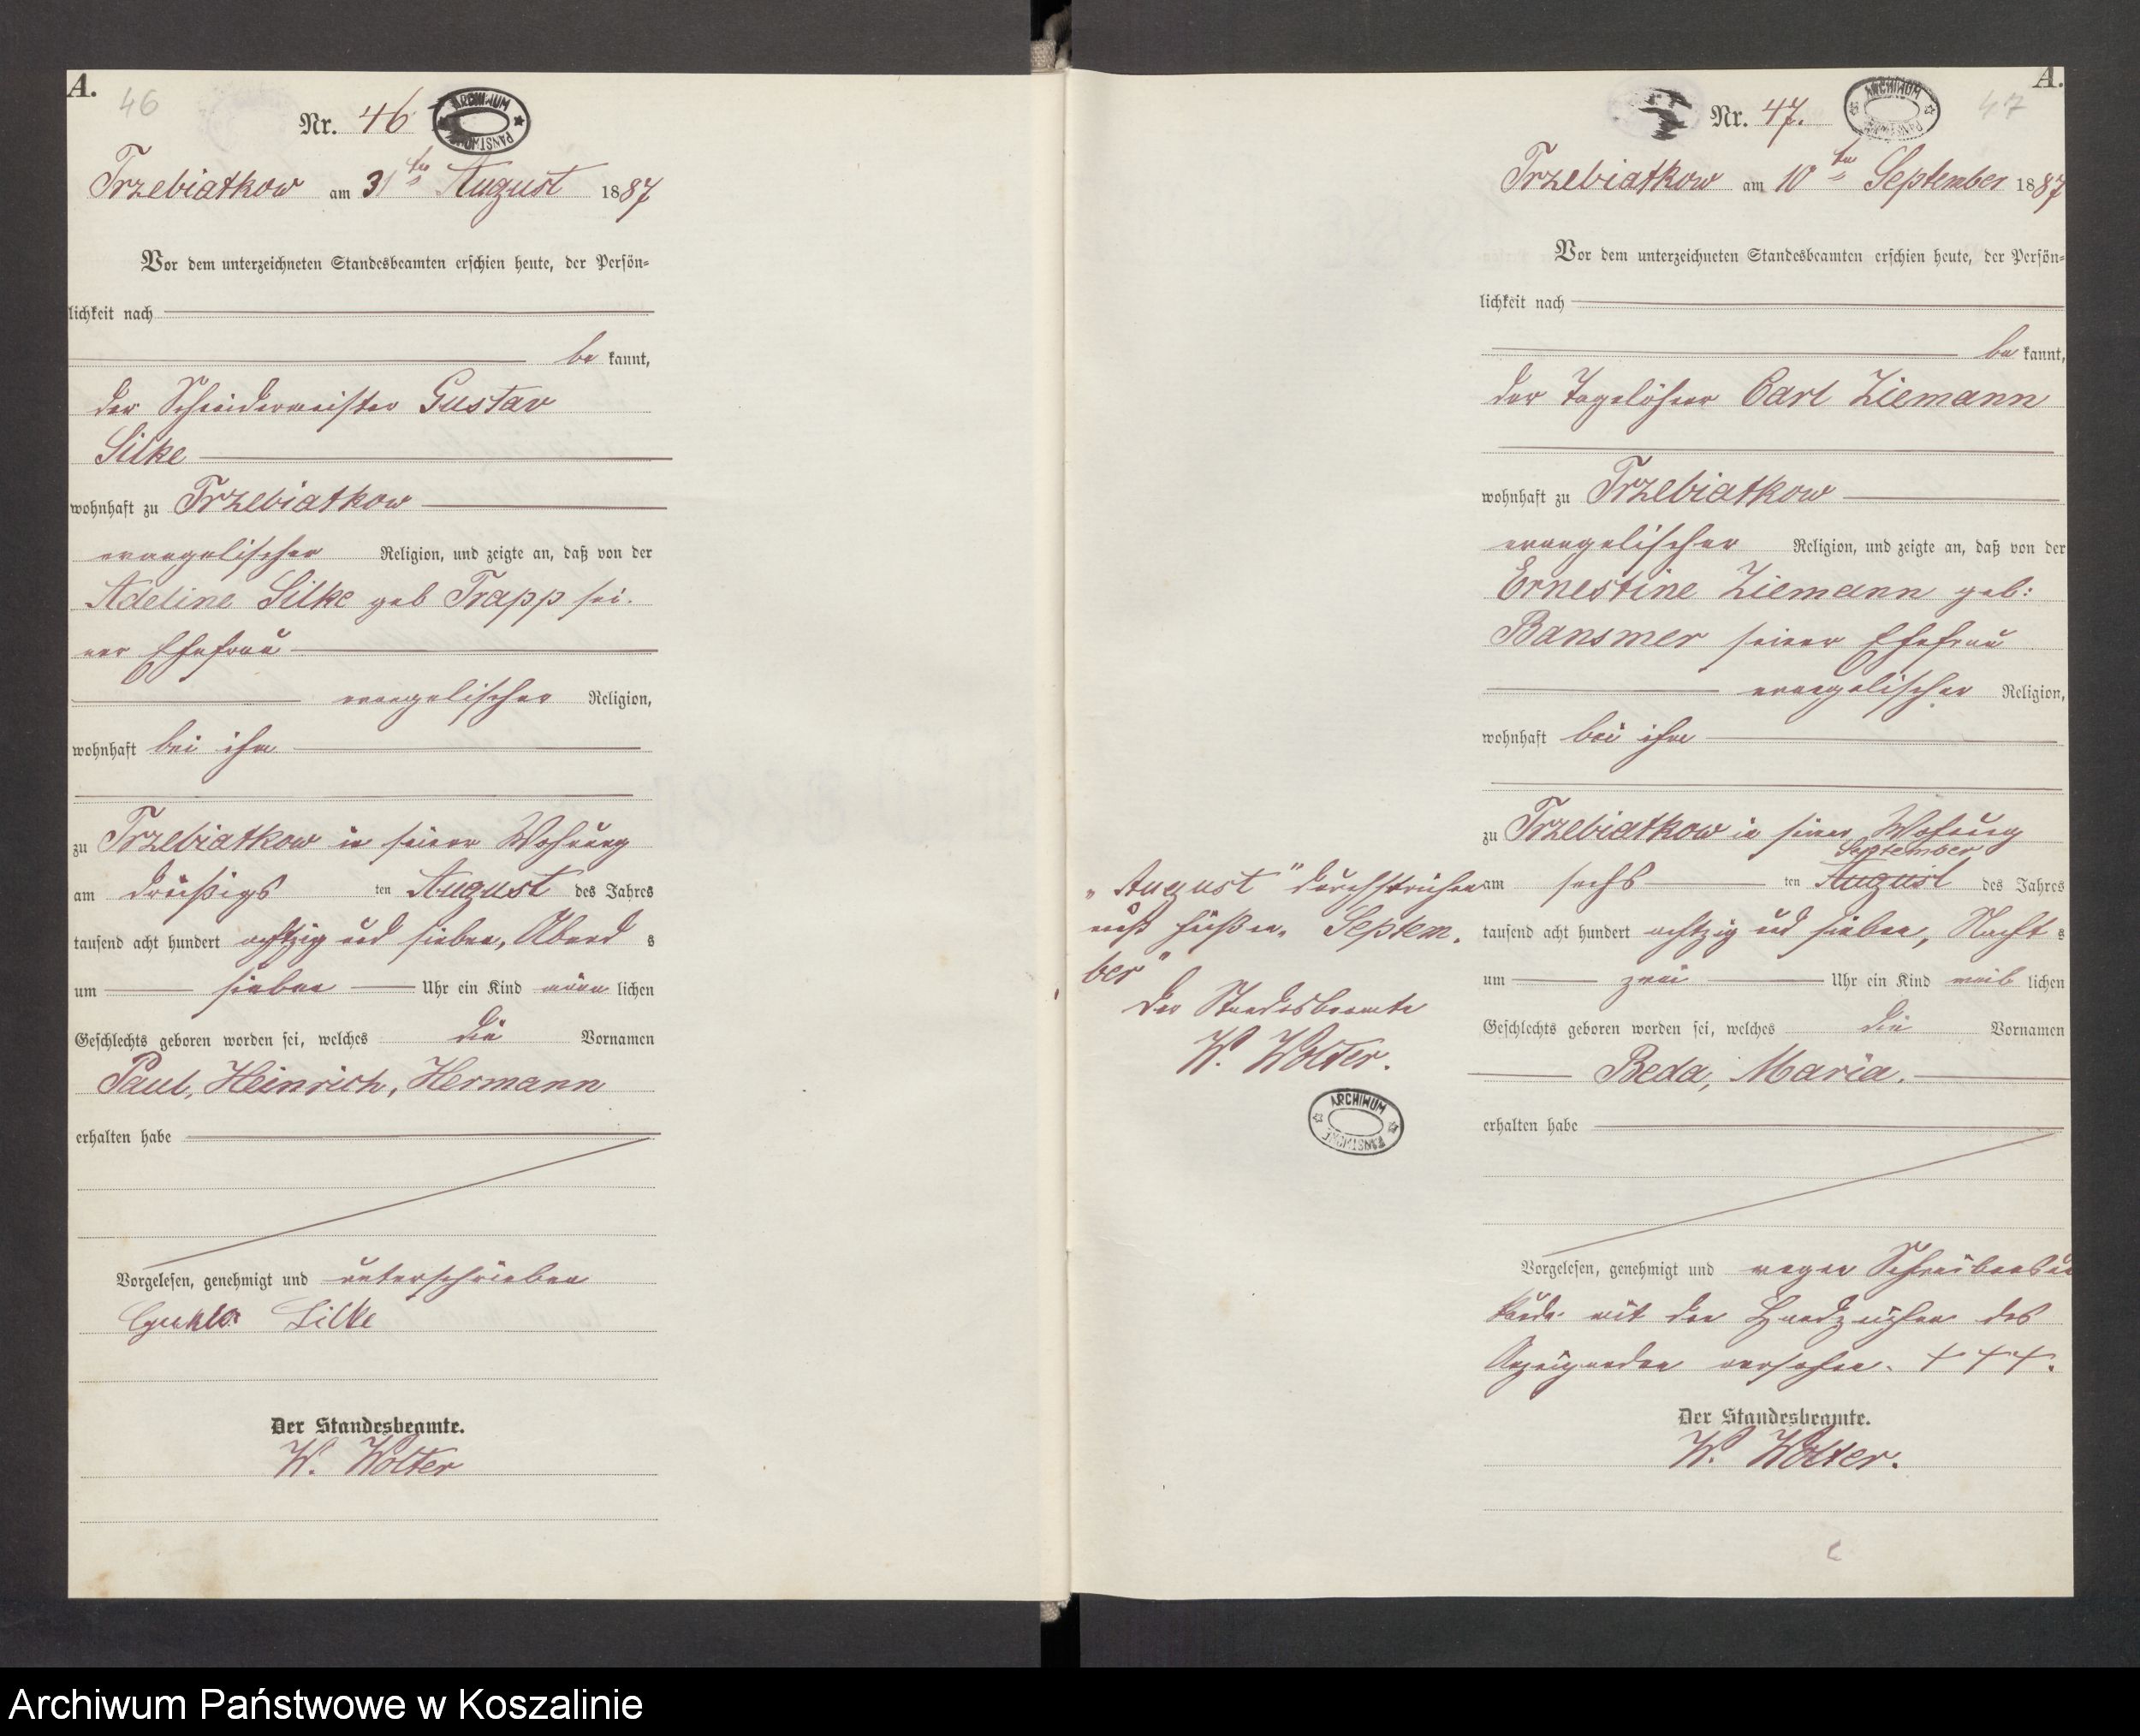 A.
46
Nr. 46
ARCHIWUM PAŃSTWOWE
Trzebiatkow am 31ten August 1887
Vor dem unterzeichneten Standesbeamten erschien heute, der Persön=
lichkeit nach
be kannt,
der Schneidermeister Gustav
Silke
wohnhaft zu Trzebiatkow
evangelischer Religion, und zeigte an, daß von der
Adeline Silke geb Trapp sei-
ner Ehefrau
evangelischer Religion,
wohnhaft bei ihm
zu Trzebiatkow in seiner Wohnung
am dreißigs ten August des Jahres
tausend acht hundert achtzig und sieben, Abend s
um sieben Uhr ein Kind männ lichen
Geschlechts geboren worden sei, welches die Vornamen
Paul, Heinrich, Hermann
erhalten habe
Vorgelesen, genehmigt und unterschrieben
Silke
Der Standesbeamte.
W. Wolter
A.
47
Nr. 47.
ARCHIWUM PAŃSTWOWE
Trzebiatkow am 10ten September 1887
Vor dem unterzeichneten Standesbeamten erschien heute, der Persön=
lichkeit nach
be kannt,
der Tagelöhner Carl Ziemann
wohnhaft zu Trzebiatkow
evangelischer Religion, und zeigte an, daß von der
Ernestine Ziemann geb:
Bansmer seiner Ehefrau
evangelischer Religion,
wohnhaft bei ihm
zu Trzebiatkow in seiner Wohnung
September
am sechs ten August des Jahres
tausend acht hundert achtzig und sieben, Nacht s
um zwei Uhr ein Kind weib lichen
Geschlechts geboren worden sei, welches die Vornamen
Beda, Maria.
erhalten habe
Vorgelesen, genehmigt und wegen Schreibensun
kunde mit den Handzeichen des
Anzeigenden versehen. + + +.
Der Standesbeamte.
W. Wolter.
„August" durchstrichen
muß heißen „Septem-
ber"
Der Standesbeamte
W. Wolter.
ARCHIWUM PAŃSTWOWE
Archiwum Państwowe w Koszalinie